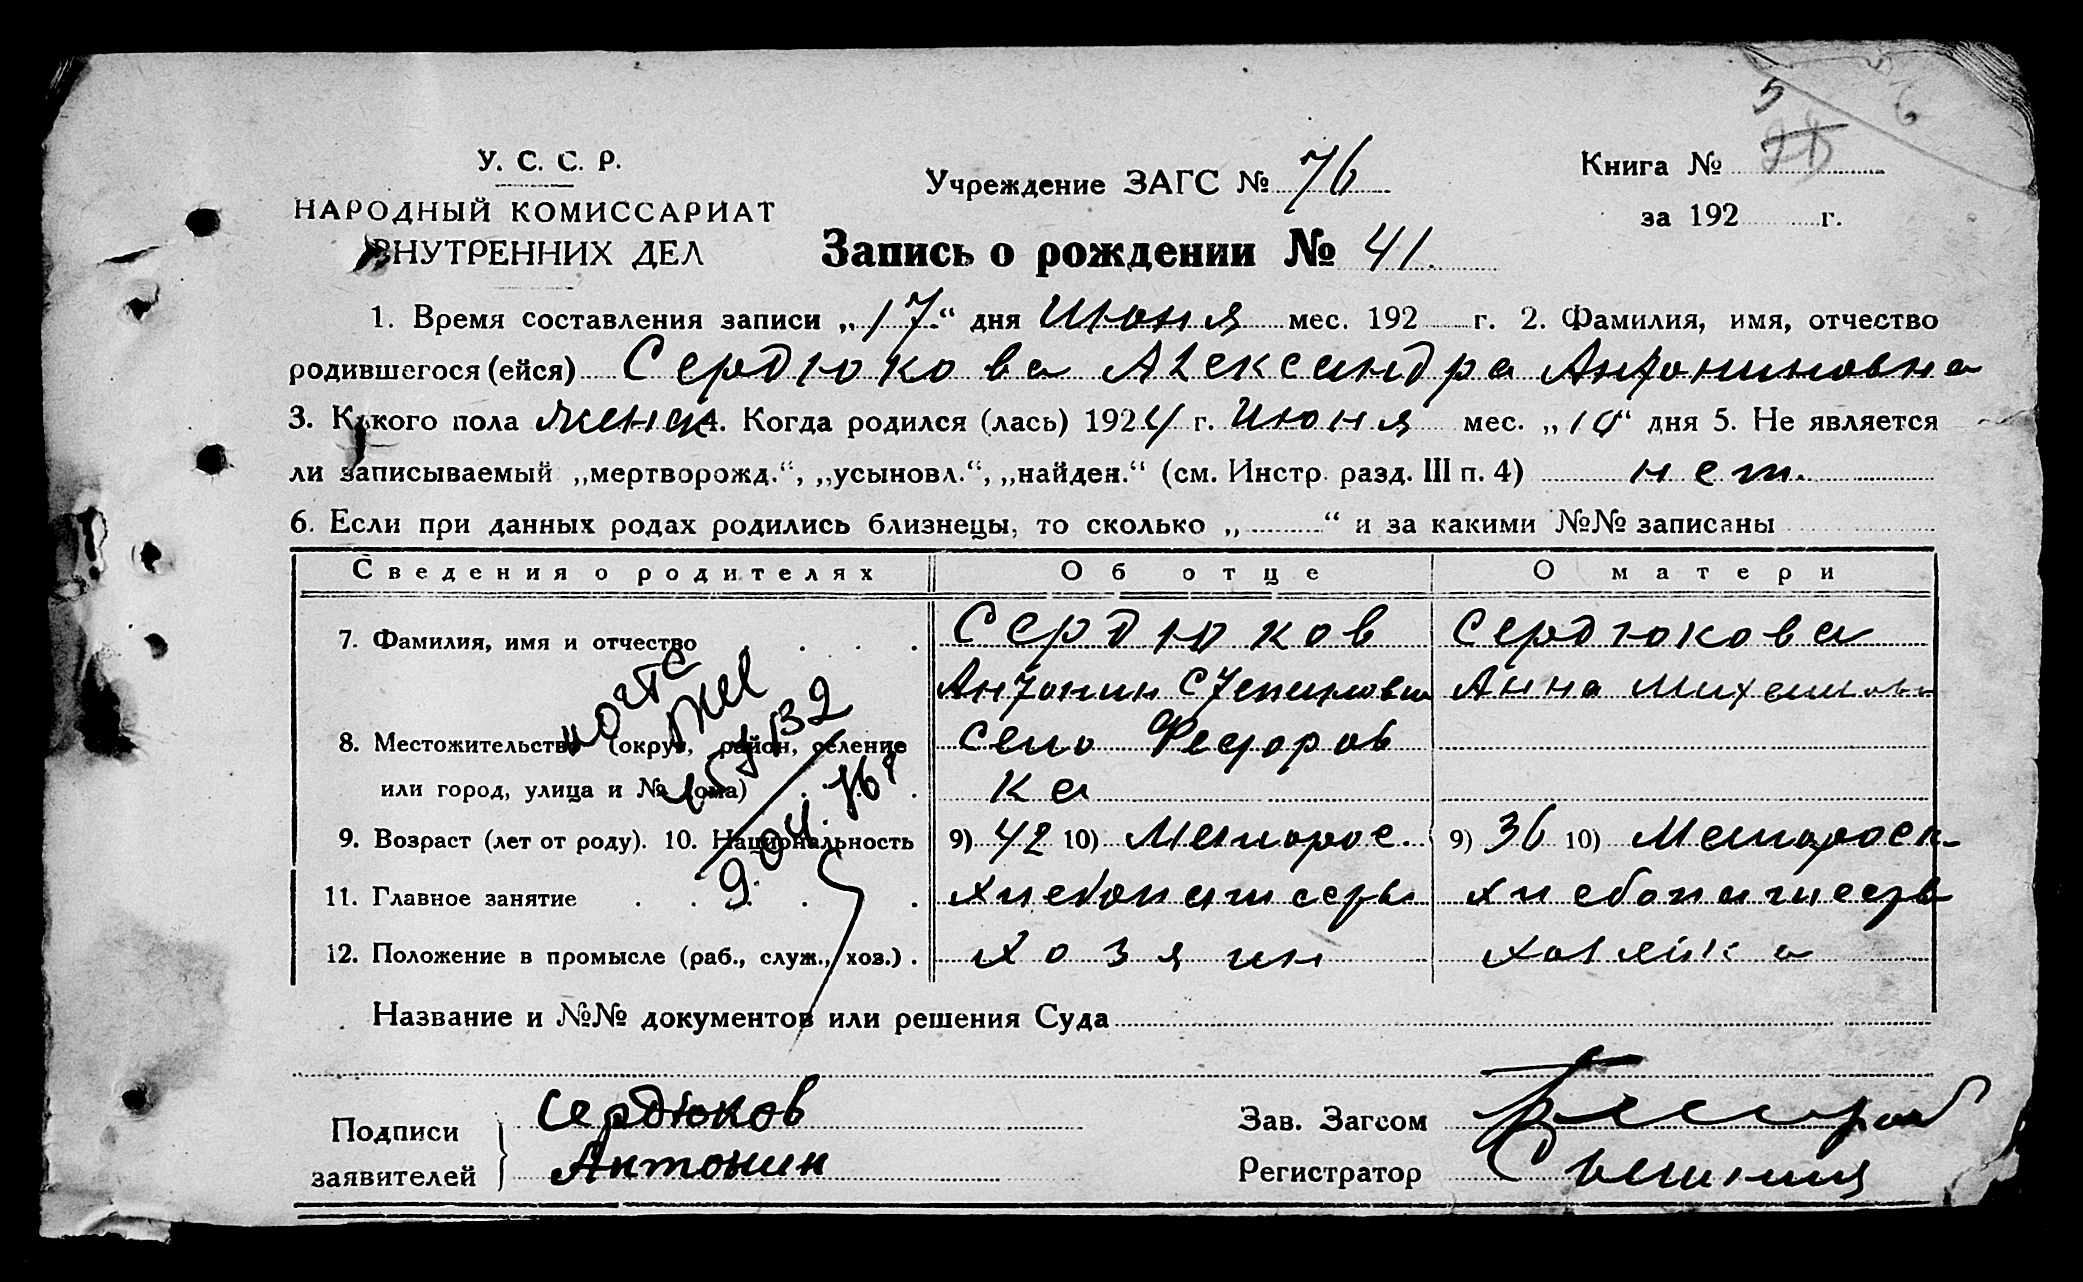 У. С. С. Р.
НАРОДНЫЙ КОМИССАРИАТ
ВНУТРЕННИХ ДЕЛ
Учреждение ЗАГС № 76
Книга №
за 192 г.
Запись о рождении № 41.
1. Время составления записи „17“ дня Июня мес. 192 г. 2. Фамилия, имя, отчество
родившегося (ейся) Сердюкова Александра Антониновна
3. Какого пола женск 4. Когда родился (лась) 1924 г. Июня мес. „10“ дня 5. Не является
ли записываемый „мертворожд.“, „усыновл.“, „найден.“ (см. Инстр. разд. III п. 4) нет.
6. Если при данных родах родились близнецы, то сколько „ “ и за какими №№ записаны
Сведения о родителях Об отце О матери
7. Фамилия, имя и отчество Сердюков Сердюкова
Антонин Анна
8. Местожительство (округ, район, селение село Федоров
или город, улица и № дома) ка
9. Возраст (лет от роду). 10. Национальность 9) 42 10) Малорос. 9) 36 10) Малороск.
11. Главное занятие хлебопашество хлебопашество
12. Положение в промысле (раб., служ., хоз.) хозяин хозяйка
9.04.76
Название и №№ документов или решения Суда
Подписи
заявителей
Сердюков
Антонин
Зав. Загсом
Регистратор